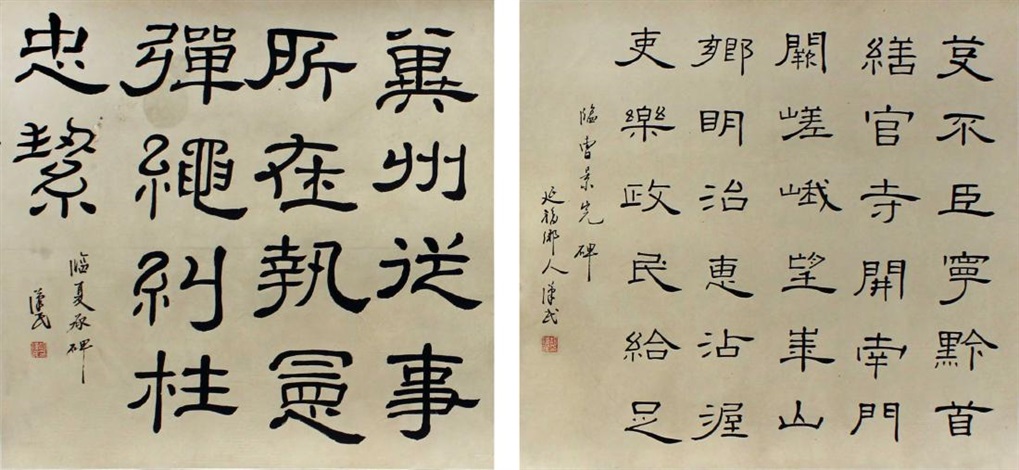 芟不臣寧黔首
繕官寺開南門
闕嵯峨望華山
鄉明治惠沾渥
吏樂政民給足
臨曹景完碑
延福鄉人漢民
冀州從事
所在執憲
彈繩糾枉
忠絜
臨夏承碑
漢民